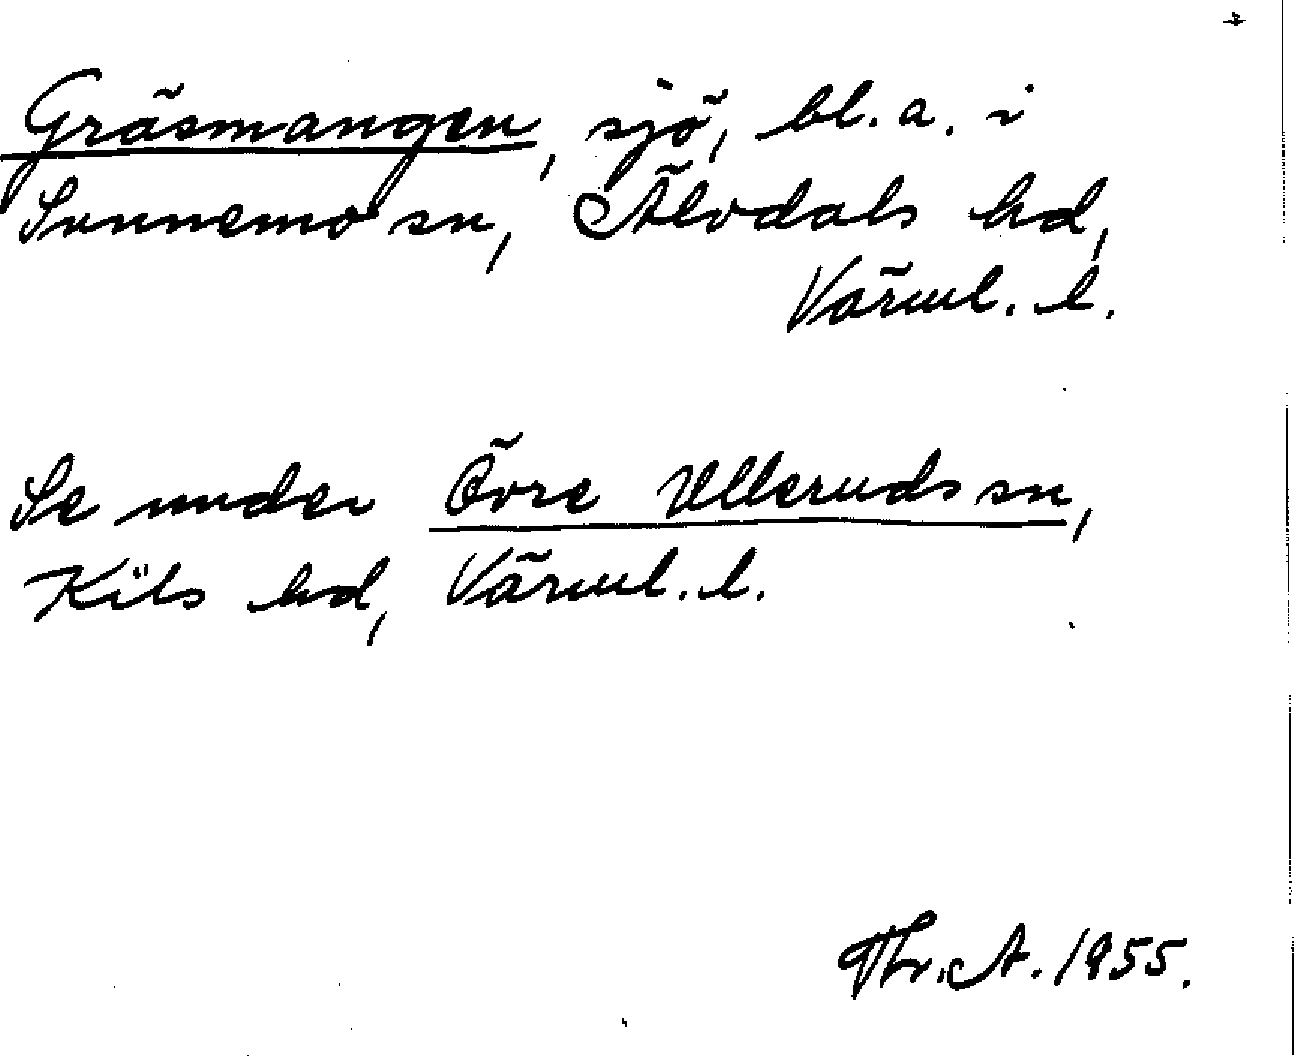 Gräsmangen, sjö, bl. a. i
Sunnemo sn, Älvdals hd,
Värml. l.
Se under Övre Ulleruds sn,
Kils hd, Värml. l.
Thr. A. 1955.